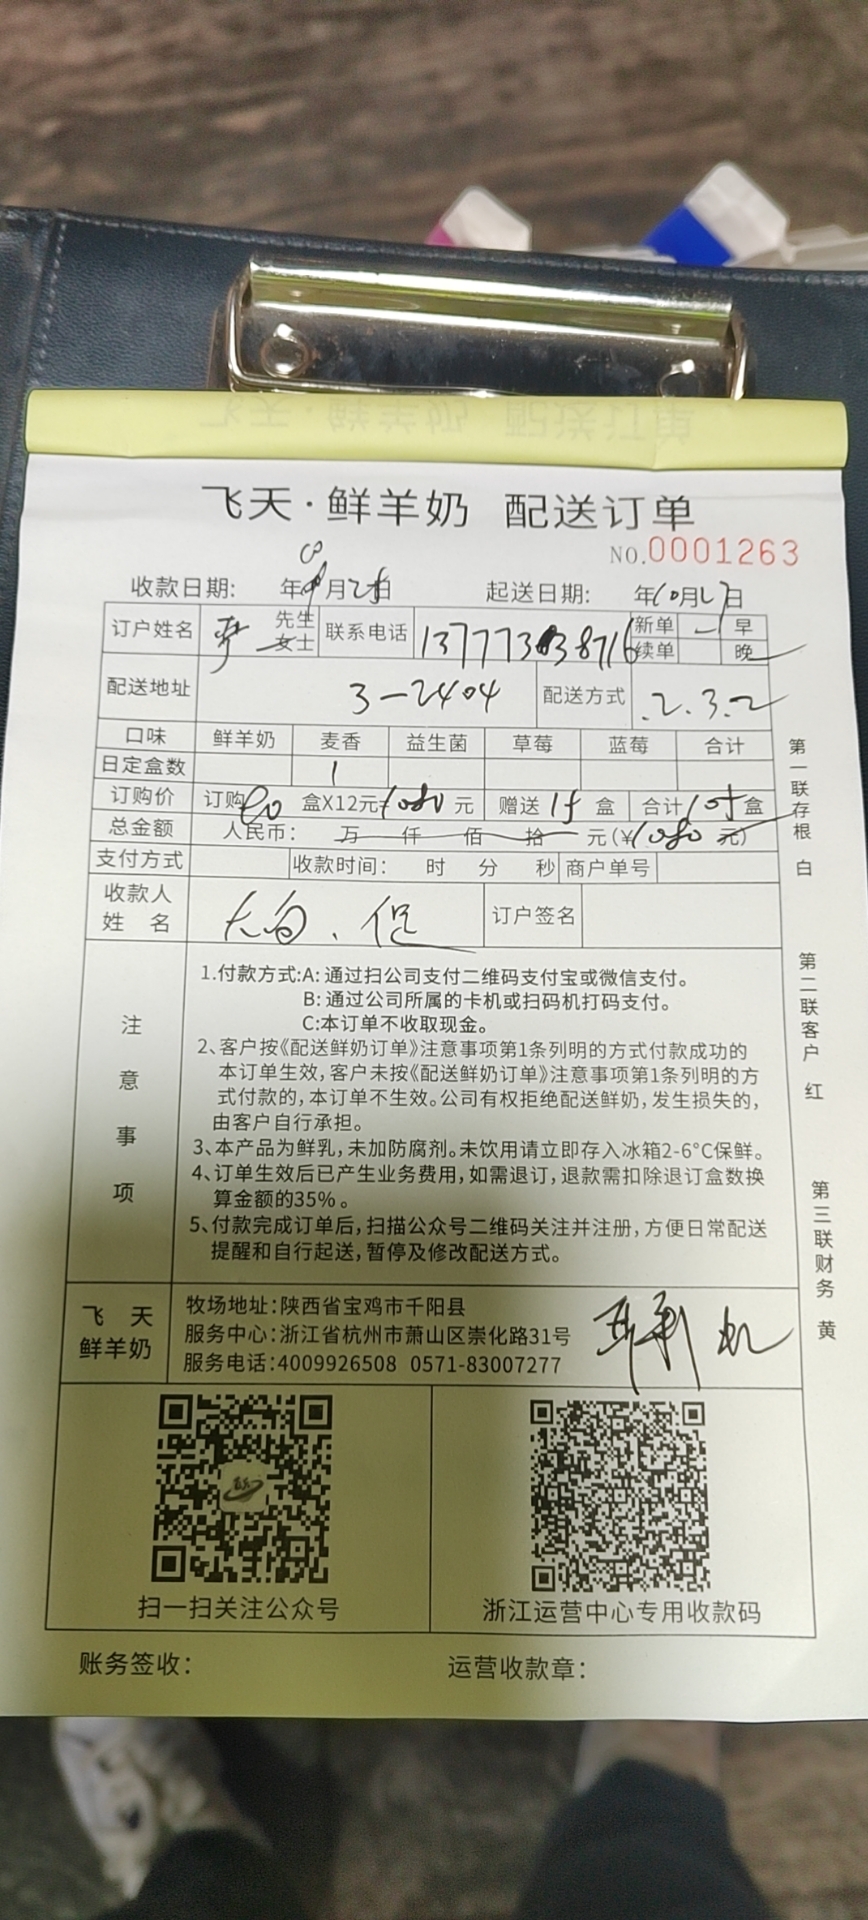 飞天·鲜羊奶 配送订单
NO.0001263
收款日期: 年 月 日 起送日期: 年10月 日
订户姓名 严 先生 女士 联系电话 新单 早
续单 晚
配送地址 3-2404 配送方式 .2.3.2
口味 鲜羊奶 麦香 益生菌 草莓 蓝莓 合计
日定盒数 1
订购价 订购90盒X12元=1080元 赠送15盒 合计105盒
总金额 人民币: 万 仟 佰 拾 元(¥1080元)
支付方式 收款时间: 时 分 秒 商户单号
收款人
姓 名 订户签名
注意事项
1.付款方式:A: 通过扫公司支付二维码支付宝或微信支付。
B: 通过公司所属的卡机或扫码机打码支付。
C:本订单不收取现金。
2、客户按《配送鲜奶订单》注意事项第1条列明的方式付款成功的
本订单生效,客户未按《配送鲜奶订单》注意事项第1条列明的方
式付款的,本订单不生效。公司有权拒绝配送鲜奶,发生损失的,
由客户自行承担。
3、本产品为鲜乳,未加防腐剂。未饮用请立即存入冰箱2-6°C保鲜。
4、订单生效后已产生业务费用,如需退订,退款需扣除退订盒数换
算金额的35%。
5、付款完成订单后,扫描公众号二维码关注并注册,方便日常配送
提醒和自行起送,暂停及修改配送方式。
飞 天
鲜羊奶
牧场地址:陕西省宝鸡市千阳县
服务中心:浙江省杭州市萧山区崇化路31号
服务电话:4009926508 0571-83007277
扫一扫关注公众号 浙江运营中心专用收款码
账务签收: 运营收款章:
第一联存根 白
第二联客户 红
第三联财务 黄